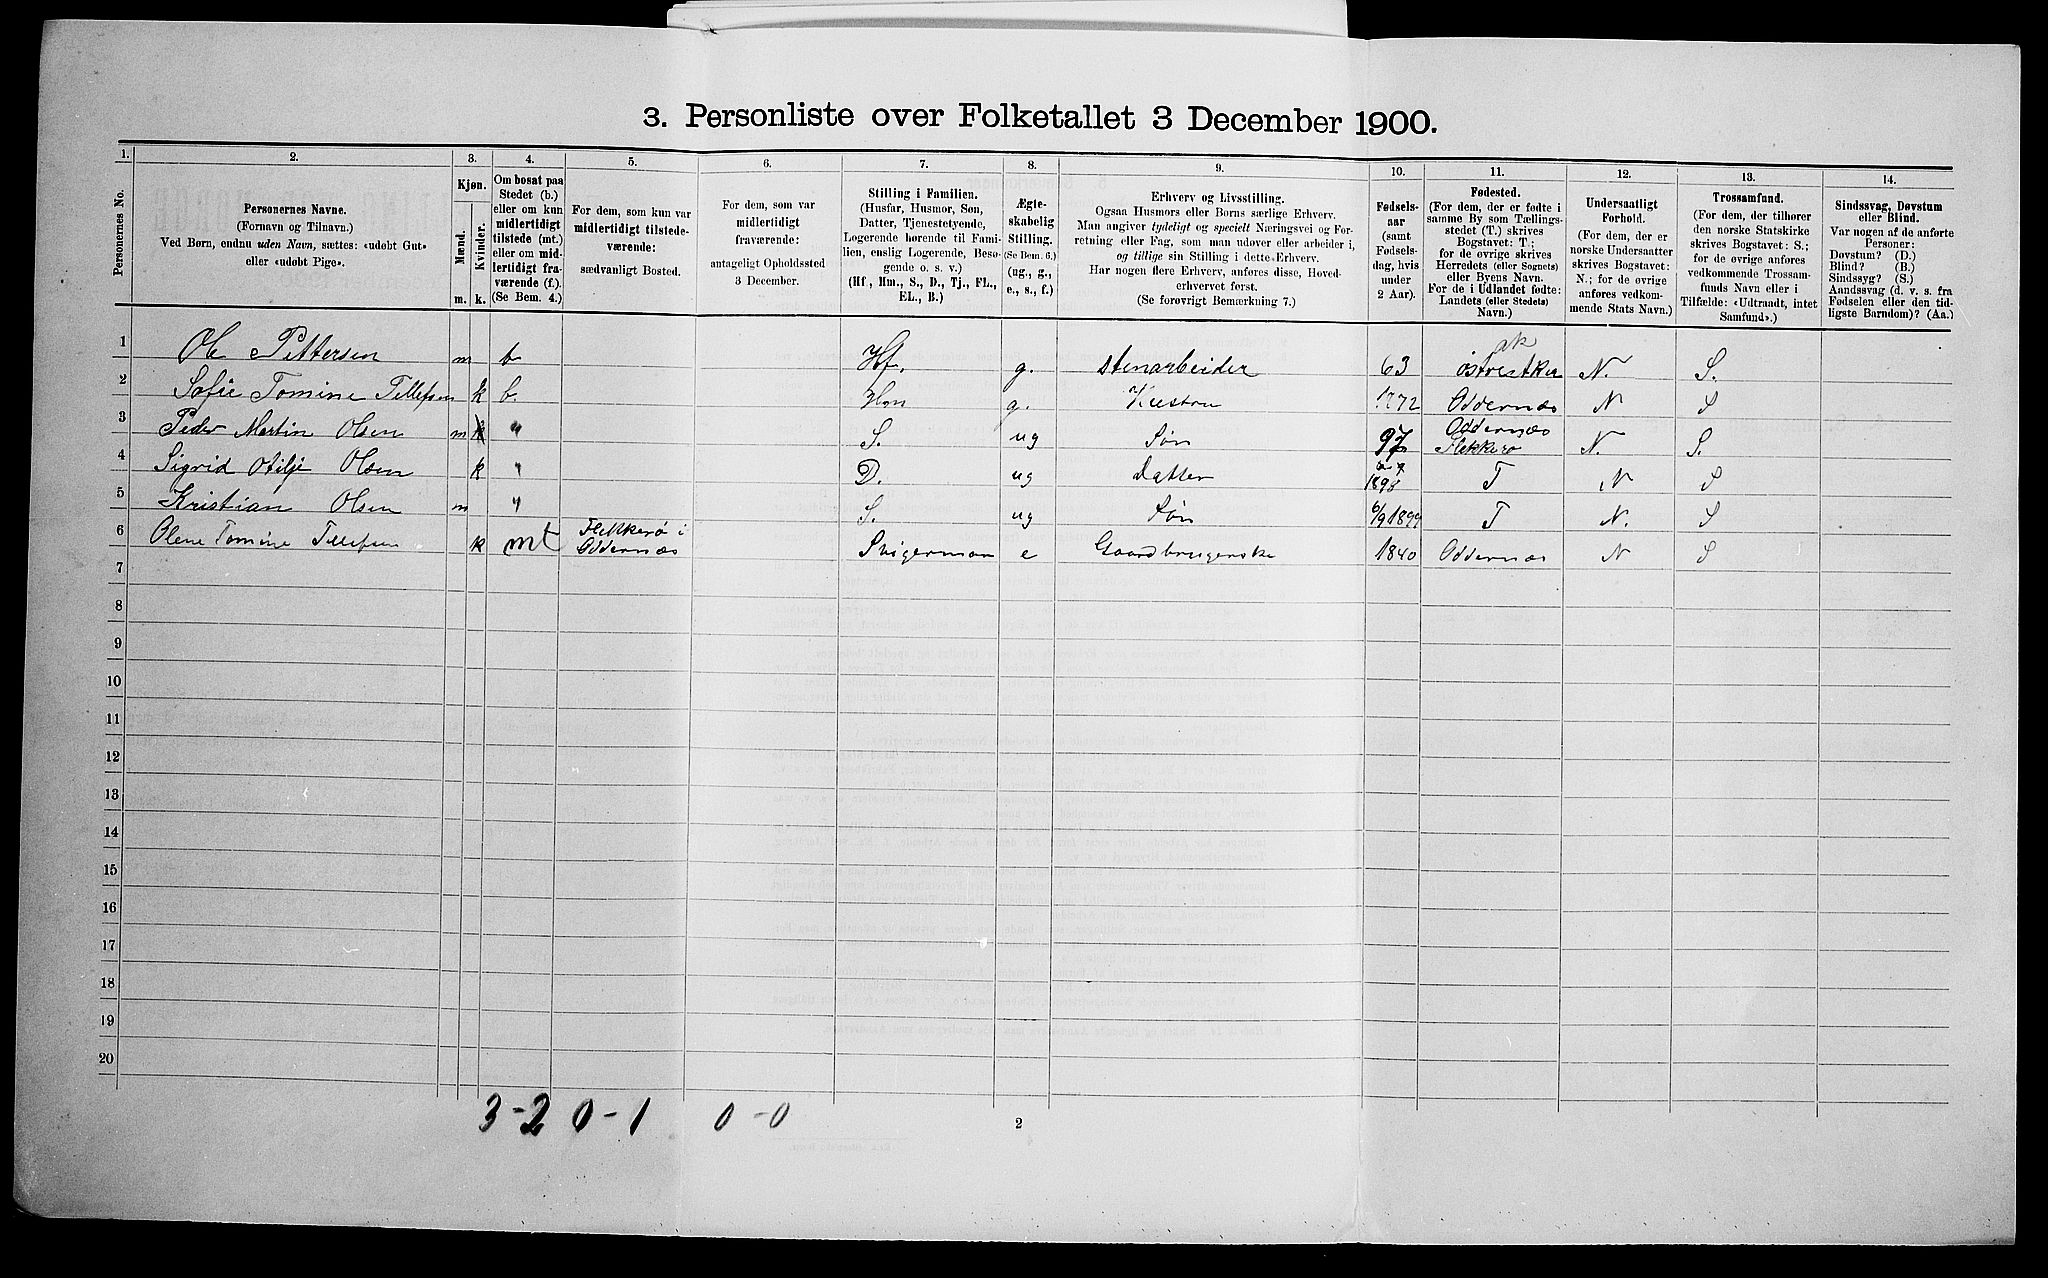 3. Personliste over Folketallet 3 December 1900.
1. 2. 3. 4. 5. 6. 7. 8. 9. 10. 11. 12. 13. 14.
Personernes No.
Personernes Navne.
(Fornavn og Tilnavn.)
Ved Børn, endnu uden Navn, sættes: «udøbt Gut»
eller «udøbt Pige».
Kjøn.
Mænd.
Kvinder.
m. k.
Om bosat paa
Stedet (b.)
eller om kun
midlertidigt
tilstede (mt.)
eller om mid-
lertidigt fra-
værende (f.).
(Se Bem. 4.)
For dem, som kun var
midlertidigt tilstede-
værende:
sædvanligt Bosted.
For dem, som var
midlertidigt
fraværende:
antageligt Opholdssted
3 December.
Stilling i Familien.
(Husfar, Husmor, Søn,
Datter, Tjenestetyende,
Logerende hørende til Fami-
lien, enslig Logerende, Besø-
gende o. s. v.)
(Hf., Hm., S., D., Tj., FL.,
EL., B.)
Ægte-
skabelig
Stilling.
(Se Bem. 6.)
(ug., g.,
e., s., f.)
Erhverv og Livsstilling.
Ogsaa Husmors eller Børns særlige Erhverv.
Man angiver tydeligt og specielt Næringsvei og For-
retning eller Fag, som man udøver eller arbeider i,
og tillige sin Stilling i dette Erhverv.
Har nogen flere Erhverv, anføres disse, Hoved-
erhvervet først.
(Se forøvrigt Bemærkning 7.)
Fødsels-
aar
(samt
Fødsels-
dag, hvis
under
2 Aar).
Fødested.
(For dem, der er fødte i
samme By som Tællings-
stedet (T.) skrives
Bogstavet: T.;
for de øvrige skrives
Herredets (eller Sognets)
eller Byens Navn.
For de i Udlandet fødte:
Landets (eller Stedets)
Navn.)
Undersaatligt
Forhold.
(For dem, der er
norske Undersaatter
skrives Bogstavet:
N.; for de øvrige
anføres vedkom-
mende Stats Navn.)
Trossamfund.
(For dem, der tilhører
den norske Statskirke
skrives Bogstav: S.;
for de øvrige anføres
vedkommende Trossam-
funds Navn eller i
Tilfælde: «Udtraadt, intet
Samfund».)
Sindssvag, Døvstum
eller Blind.
Var nogen af de anførte
Personer:
Døvstum? (D.)
Blind? (B.)
Sindssyg? (S.)
Aandssvag (d. v. s. fra
Fødselen eller den tid-
ligste Barndom)? (Aa.)
1 Ole Pettersen m b Hf. g. stenarbeider 63 N. S.
2 Sofie Tomine Tellefsen k b. Hm g. Hustru 1872 Oddernæs N S
3 Peder Martin Olsen m " S. ug Søn 97 Oddernæs Flekkerø N. S.
4 Sigrid Otilje Olsen k " D. ug Datter 1898 T N S
5 Kristian Olsen m " S. ug Søn 6/9 1899 T N. S
6 Olene Tomine Tellefsen k mt Flekkerø i Oddernæs Svigermor e Gaardbrugerske 1840 Oddernæs N S
7
8
9
10
11
12
13
14
15
16
17
18
19
20
3-2 0-1 0-0
2